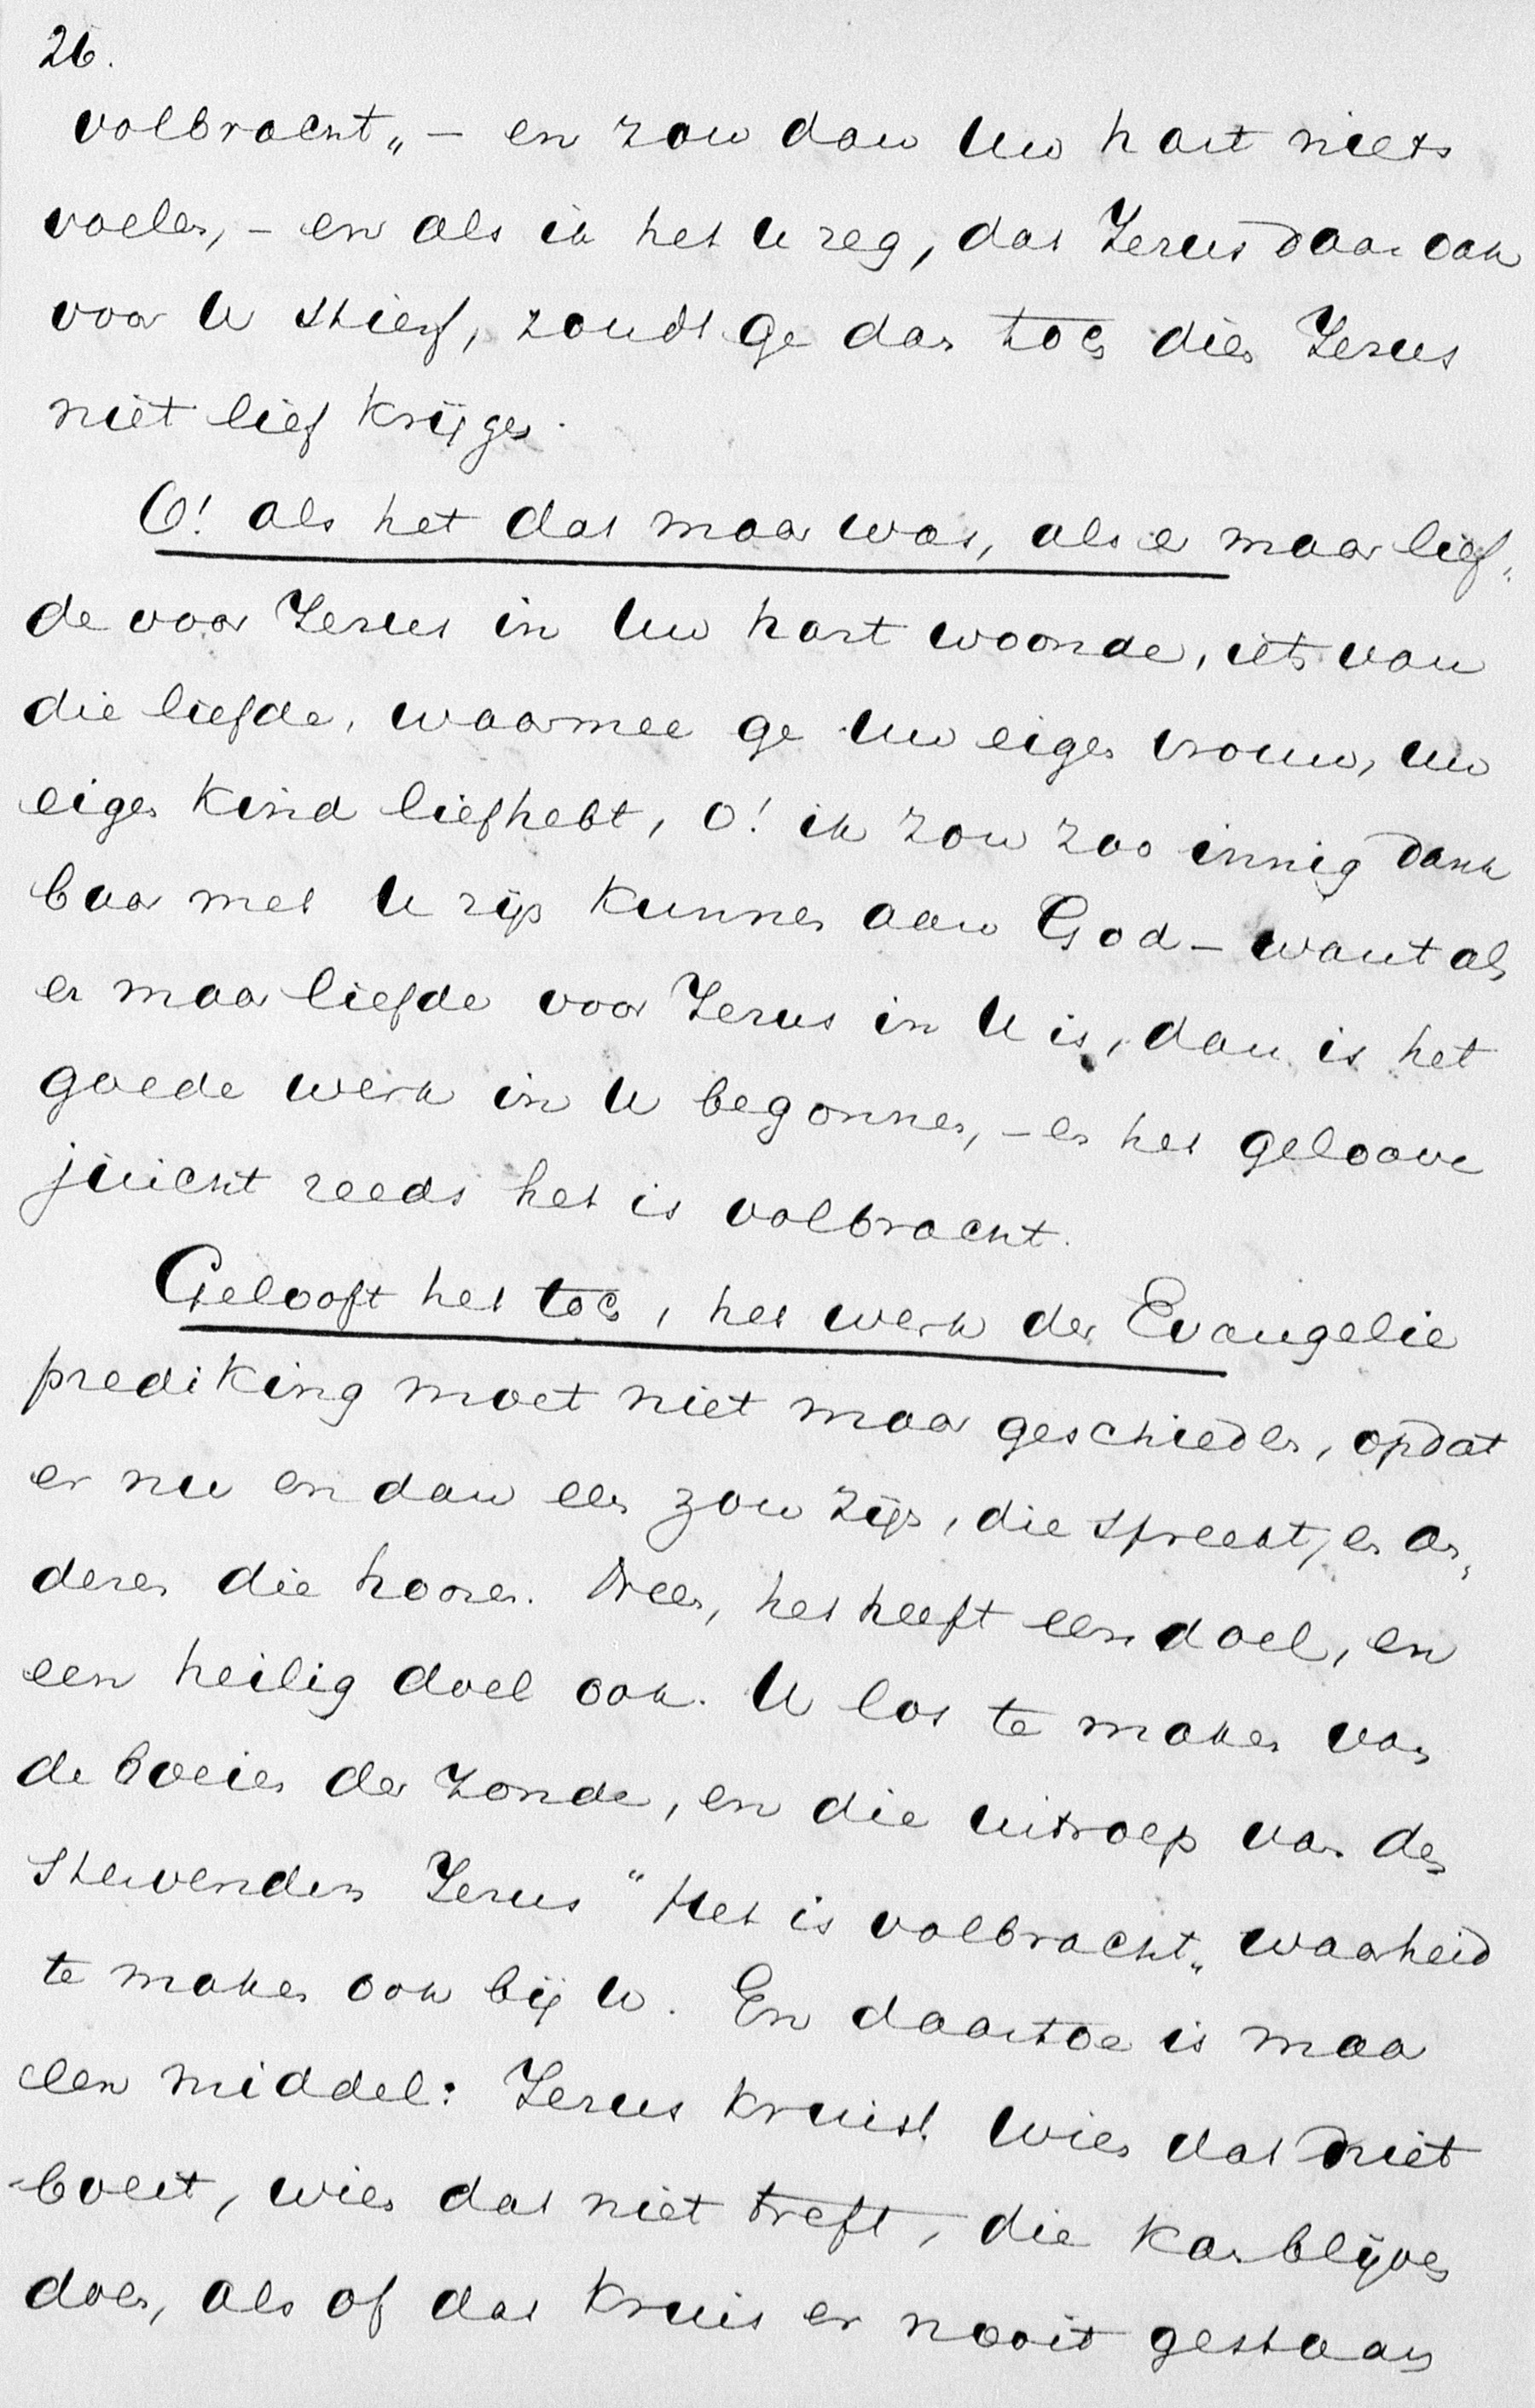 26.
volbracht„ – en zou dan Uw hart niets
voelen, – en als ik het U zeg, dat Jezus daar ook
voor U stierf, zoudt ge dan toch dien Jezus
niet lief krijgen.
O! als het dat maar was, als er maar lief„
de voor Jezus in Uw hart woonde, iets van
die liefde, waarmee ge Uw eigen vrouw, uw
eigen kind liefhebt, o! ik zou zoo innig dank
baar met U zijn kunnen aan God – want als
er maar liefde voor Jezus in U is, dan is het
goede werk in U begonnen, – en het geloove
juicht reeds het is volbracht.
Gelooft het toch, het werk der Evangelie
prediking moet niet maar geschieden, opdat
er nu en dan een zou zijn, die spreekt, en an„
deren die hooren. Neen, het heeft een doel, en
een heilig doel ook. U los te maken van
de boeien der zonde, en die uitroep van den
stervenden Jezus "Het is volbracht„ waarheid
te maken ook bij U. En daartoe is maar
een middel: Jezus kruist. Wien dat niet
boeit, wien dat niet treft, die kan blijven
doen, als of dat kruis er nooit gestaan